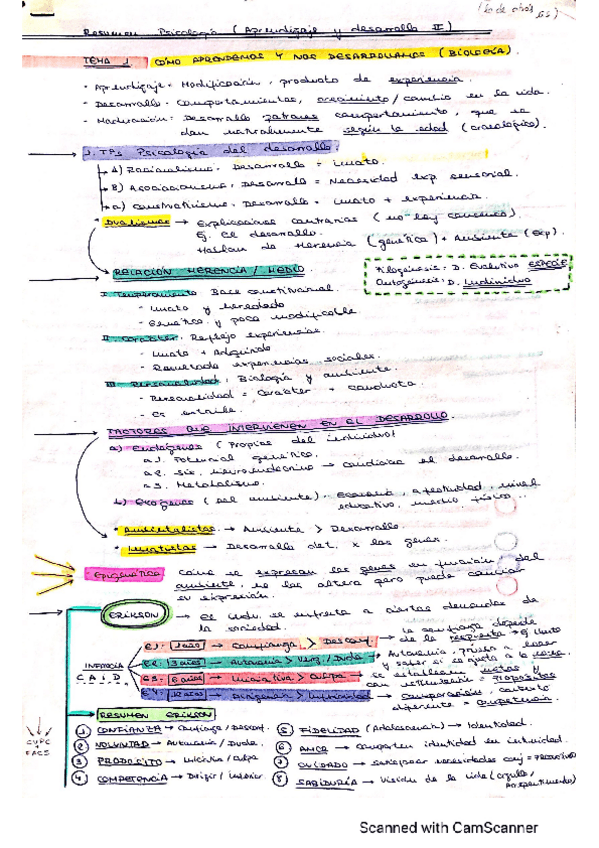 Resumen Psicología (Aprendizaje y desarrollo II)
TEMA 1 CÓMO APRENDEMOS Y NOS DESARROLLAMOS (BIOLOGÍA).
- Aprendizaje = Modificación, producto de experiencia.
- Desarrollo = Comportamientos, crecimiento / cambio en la vida.
- Maduración: Desarrollo patrones comportamiento, que se
dan naturalmente según la edad (cronológico).
Psicología del desarrollo.
A) Racionalismo: Desarrollo = Innato.
B) Asociacionismo: Desarrollo = Necesidad exp. sensorial.
Constructivismo: Desarrollo = Innato + experiencia.
Dualismos → Explicaciones contrarias (no hay consenso).
Ej. el desarrollo.
Hablan de Herencia (genética) + Ambiente (exp).
RELACIÓN HERENCIA / MEDIO.
Filogénesis: D. Evolutivo ESPECIE
Ontogénesis: D. Individuo
I. Temperamento: Base constitucional.
- Innato y heredado
- Genético y poco modificable
II. Carácter: Reflejo experiencias.
- Innato + Adquirido
- Resultado experiencias sociales.
III. Personalidad: Biología y ambiente.
- Personalidad = Carácter + conducta
- Es estable.
FACTORES QUE INTERVIENEN EN EL DESARROLLO.
a) Endógenos (Propios del individuo)
a.1. Potencial genético.
a.2. Sis. neuroendocrino → condiciona el desarrollo.
a.3. Metabolismo.
b) Exógenos (del ambiente). Economía, afectividad, nivel
educativo, medio físico...
Ambientalistas → Ambiente > Desarrollo.
Innatistas → Desarrollo det. x los genes.
Epigenética Cómo se expresan los genes en función del
ambiente, no los altera pero puede cambiar
su expresión.
ERIKSON → El indv. se enfrenta a ciertas demandas de
la sociedad.
E1: 1 año → Confianza > Desconf. → la confianza depende
de la respuesta
INFANCIA
C.A.I.D.
E2: 3 años → Autonomía > Verg. / Duda →
E3: 6 años → Iniciativa > Culpa → Se establecen metas y
= Propósitos
E4: 12 años → → Comparación, contexto
diferente = Competencia.
RESUMEN ERIKSON
① CONFIANZA → Confianza / Desconf.
② VOLUNTAD → Autonomía / Duda.
③ PROPÓSITO → Iniciativa / Culpa
④ COMPETENCIA →
⑤ FIDELIDAD (Adolescencia) → Identidad.
⑥ AMOR → Comparten identidad en intimidad.
⑦ CUIDADO → satisfacer necesidades
⑧ SABIDURÍA → Visión de la vida (orgullo / arrepentimiento)
CVPC
+
FACS
Scanned with CamScanner